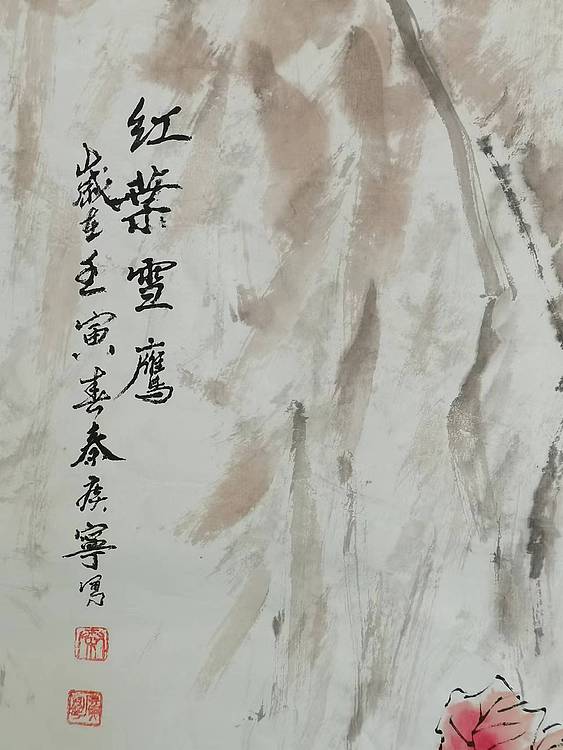 红葉雪鷹
歲在壬寅春秦寧寫